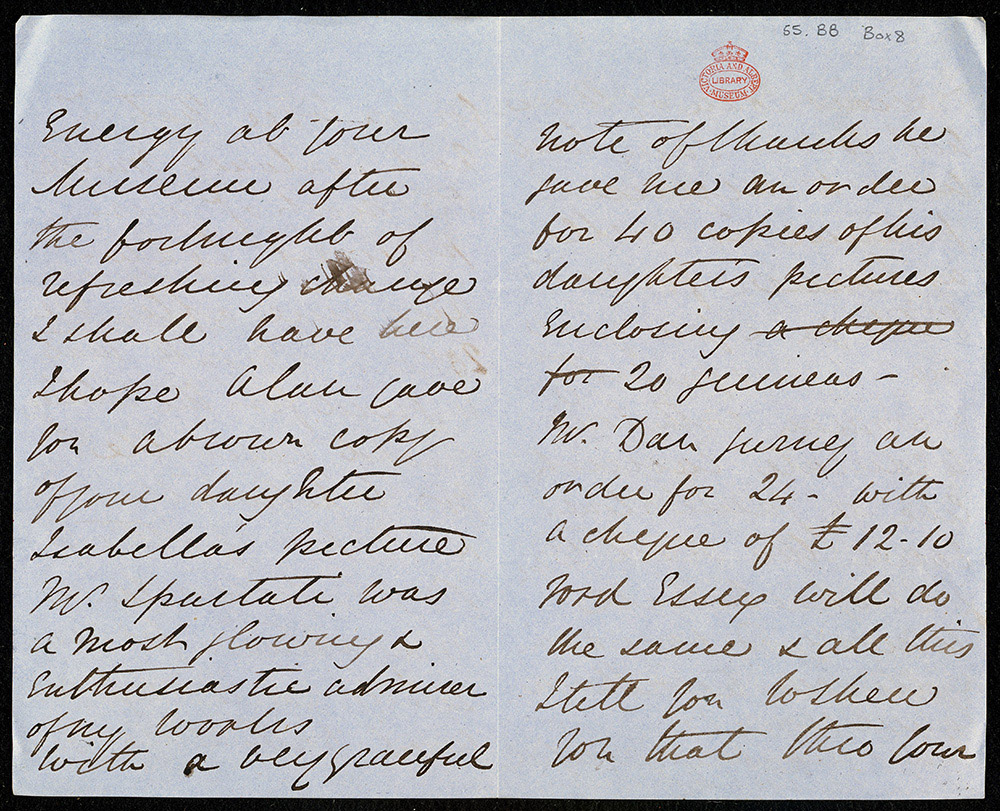 55. BB Box 8
VICTORIA AND ALBERT MUSEUM
LIBRARY
Energy at your
Museum after
the fortnight of
refreshing change
I shall have here
I hope Alan gave
you a brown copy
of your daughter
Isabella's picture
Mr. Spartati was
a most glowing &
Enthusiastic admirer
of my works
with a very graceful
note of thanks he
gave me an order
for 40 copies of his
daughters pictures
Enclosing a cheque
for 20 guineas –
Mr. Dan Gurney an
order for 24 – with
a cheque of £12-10
Lord Essex will do
the same & all this
I tell you to shew
you that thro your